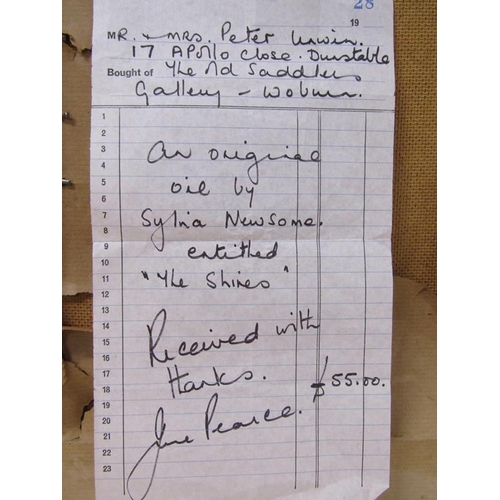 28
19
MR. & MRS. Peter Unwin.
17 Apollo Close. Dunstable
Bought of The Old Saddlers
Gallery - Woburn.
1
2
3
An original
4
5
oil by
6
7
Sylvia Newsome.
8
9
entitled
10
11
"The Shires"
12
13
14
Received with
15
16
17
Thanks.
18
£55.00.
19
20
June Pearce.
21
22
23